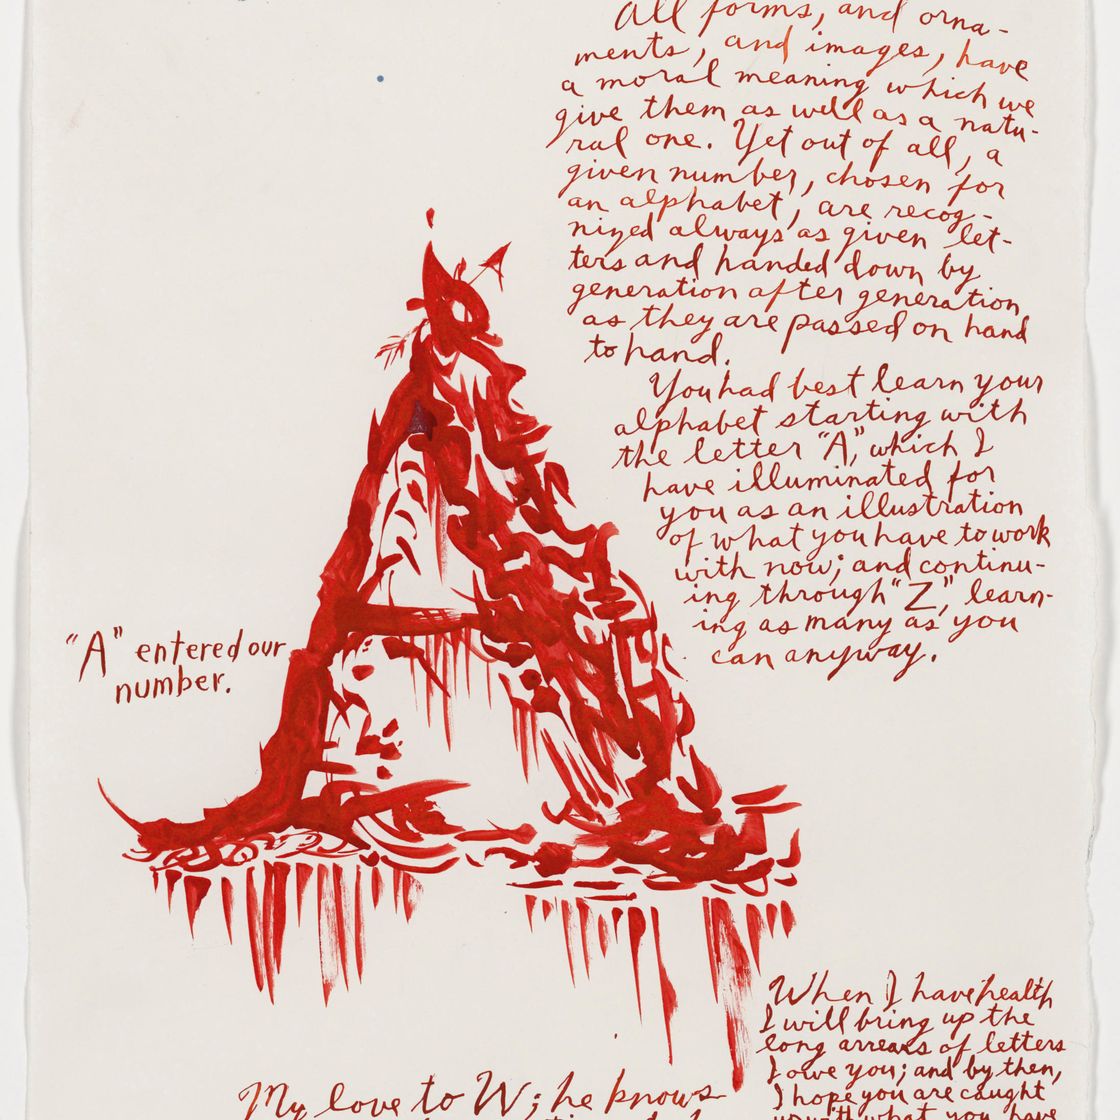 All forms, and orna-
ments, and images, have
a moral meaning which we
give them as well as a natu-
ral one. Yet out of all, a
given number, chosen for
an alphabet, are recog-
nized always as given let-
ters and handed down by
generation after generation
as they are passed on hand
to hand.
You had best learn your
alphabet starting with
the letter "A", which I
have illuminated for
you as an illustration
of what you have to work
with now; and continu-
ing through "Z", learn-
ing as many as you
can anyway.
"A" entered our
number.
When I have health
I will bring up the
long arrears of letters
I owe you; and by then,
I hope you are caught
up with what you have
My love to W; he knows